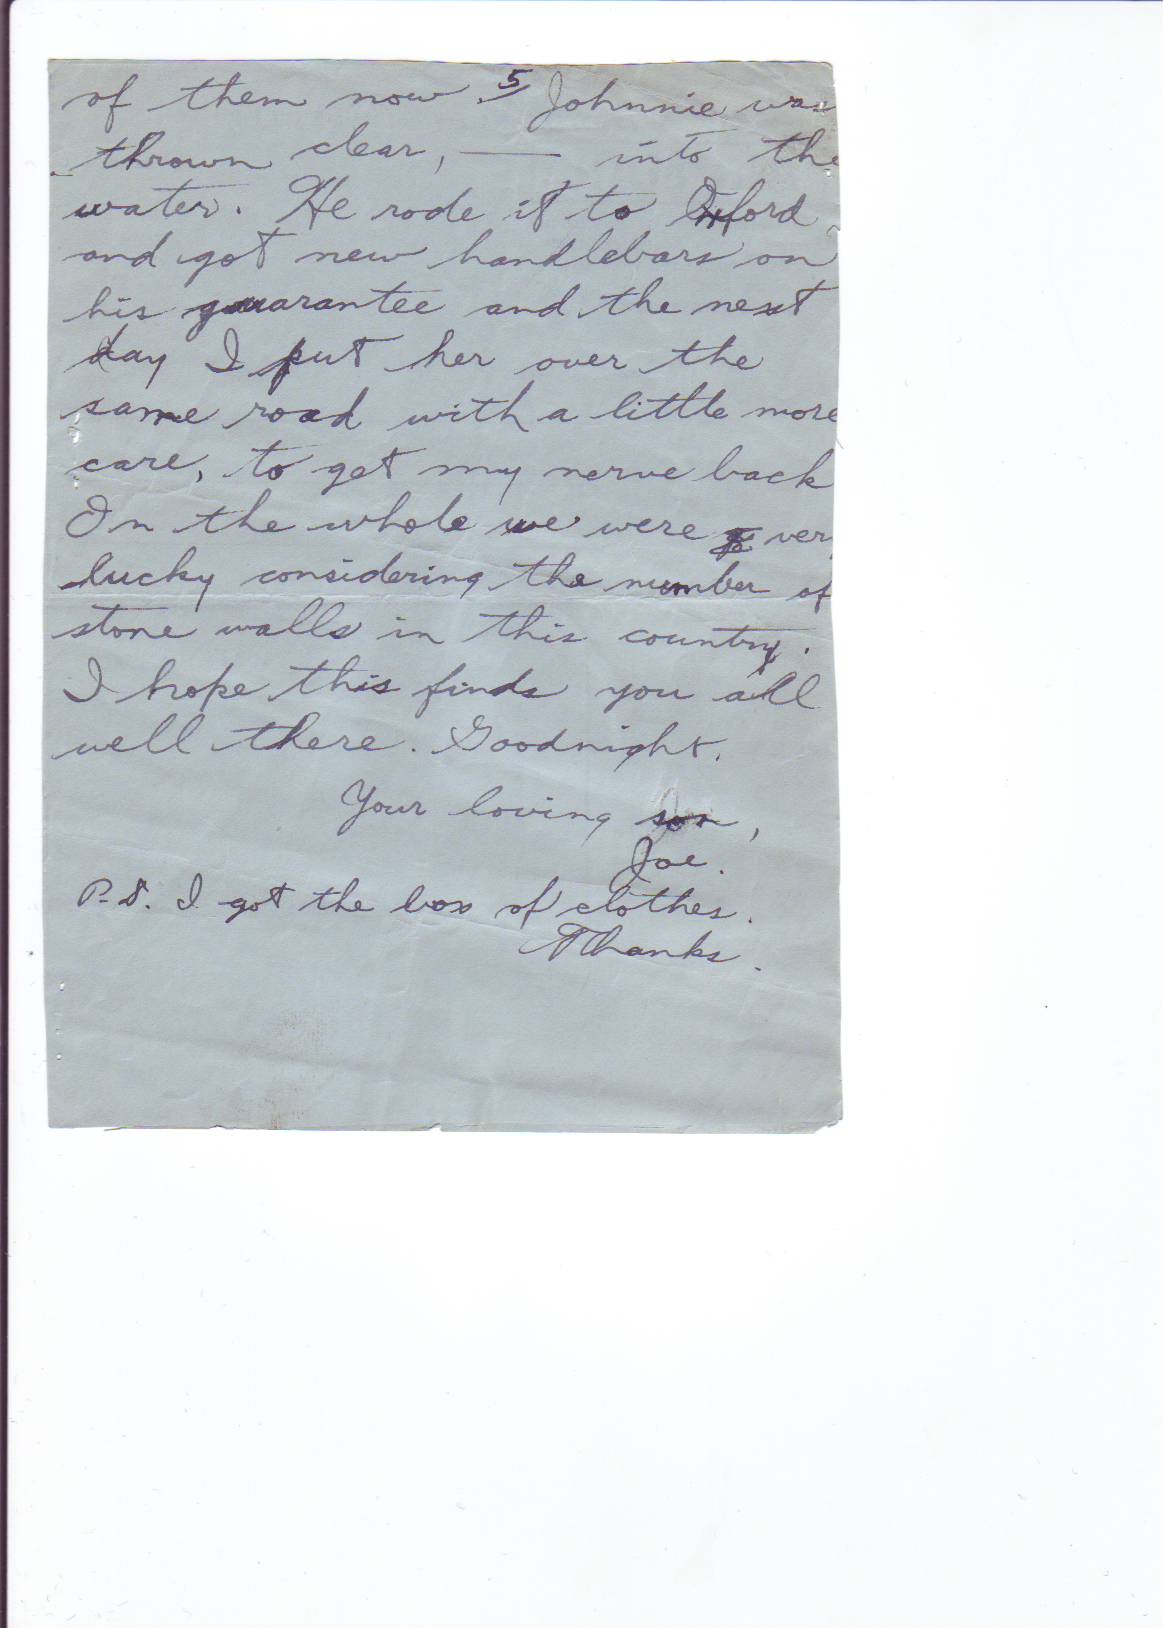 5
of them now. Johnnie was
thrown clear, — into the
water. He rode it to Oxford
and got new handlebars on
his guarantee and the next
day I put her over the
same road with a little more
care, to get my nerve back
On the whole we were very
lucky considering the number of
stone walls in this country.
I hope this finds you all
well there. Goodnight.
Your loving son,
Joe.
P.S. I got the box of clothes.
Thanks.